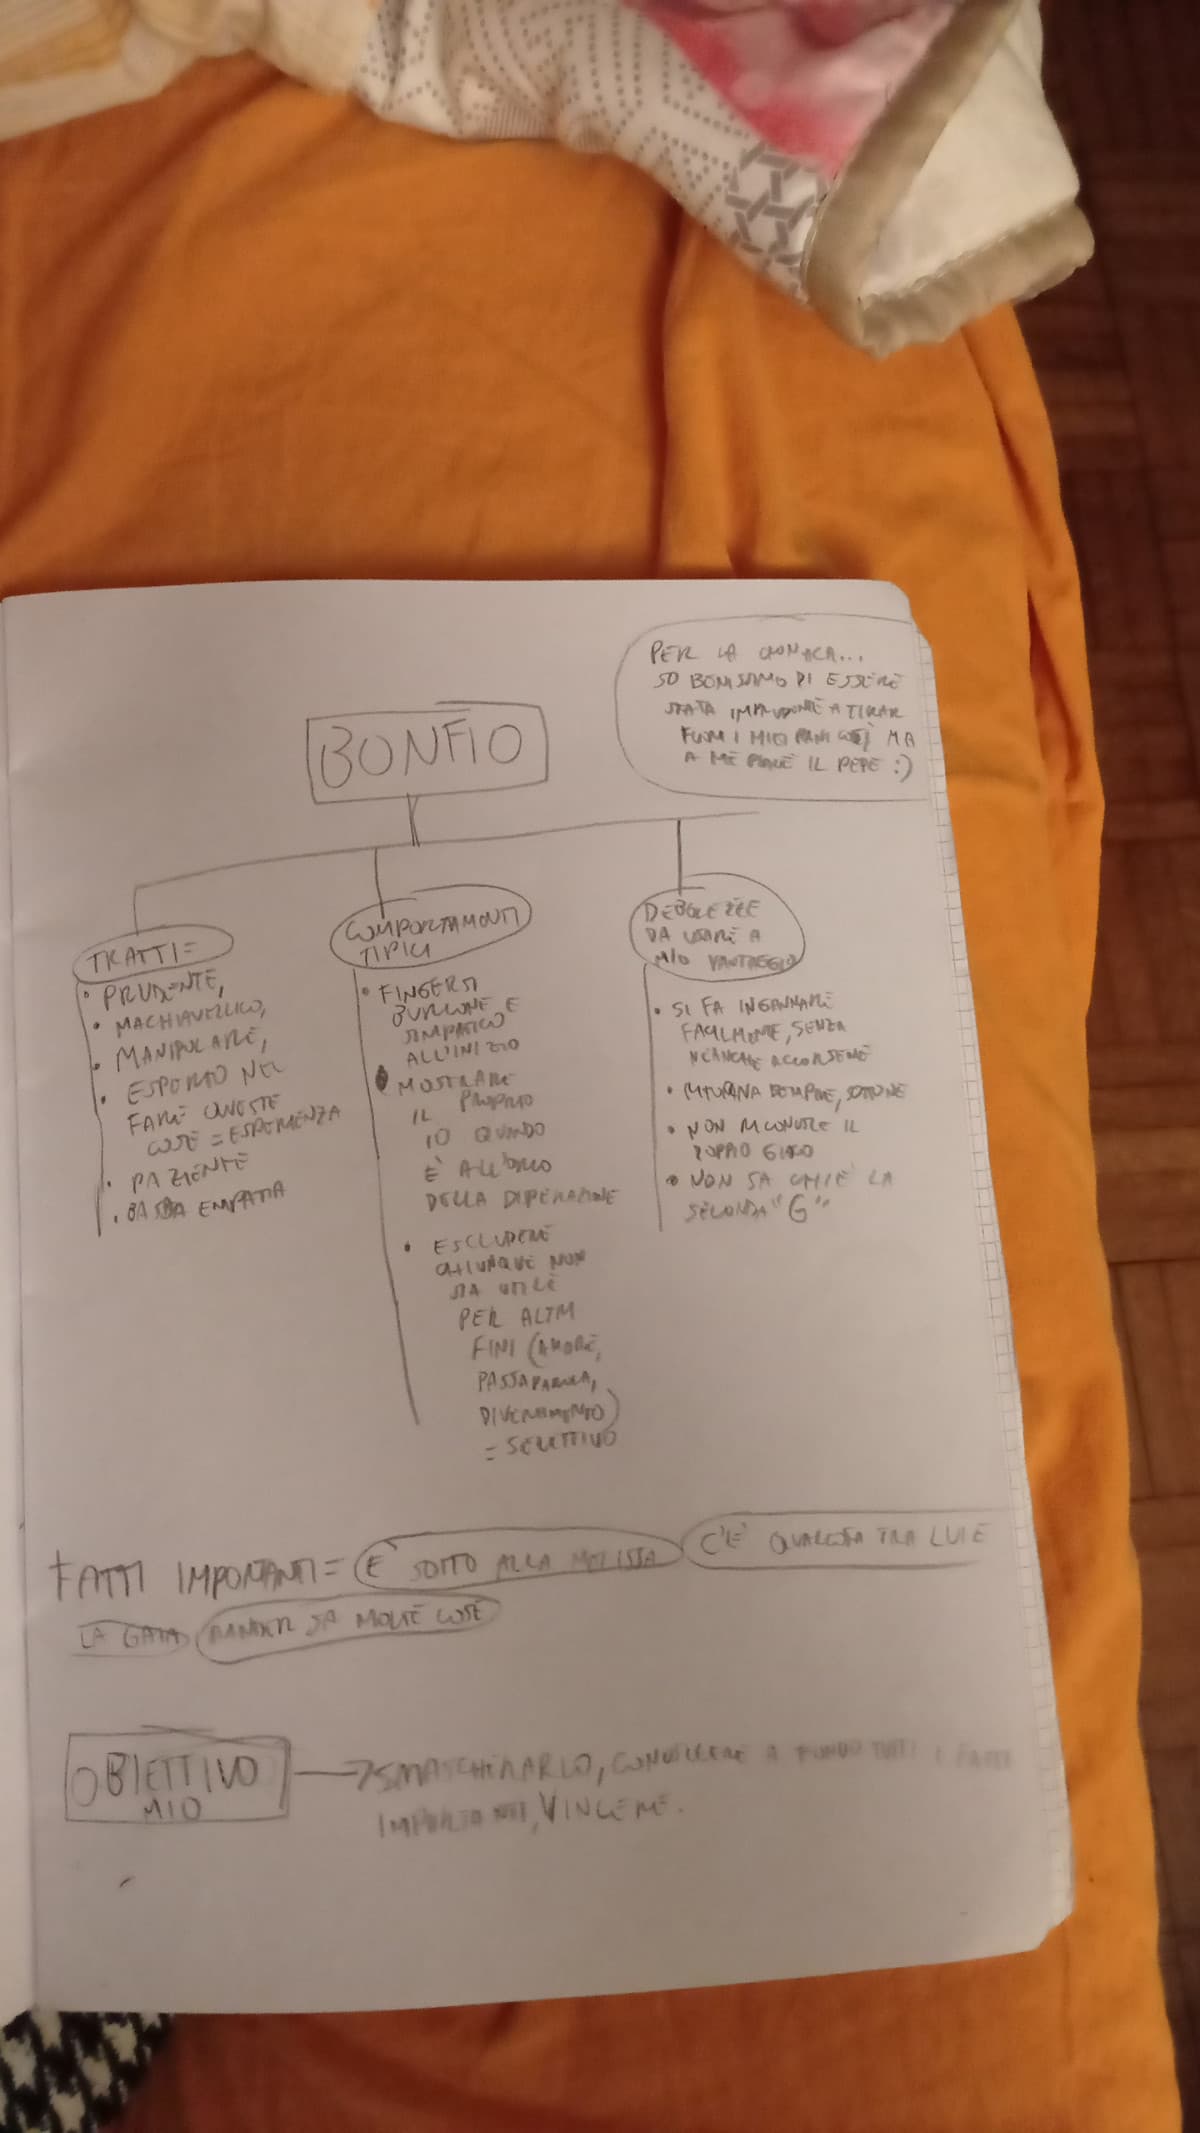 BONFIO
PER LA CRONACA...
SO BENISSIMO DI ESSERE
STATA IMPRUDENTE A TIRAR
FUORI I MIEI PIANI COSÌ MA
A ME PIACE IL PEPE :)
TRATTI=
• PRUDENTE,
• MACHIAVELLICO,
• MANIPOLARE,
• ESPERTO NEL
FARE QUESTE
COSE = ESPERIENZA
• PAZIENTE
• BASSA EMPATIA
COMPORTAMENTI
TIPICI
• FINGERSI
BURLONE E
SIMPATICO
ALL'INIZIO
• MOSTRARE
IL PROPRIO
IO QUANDO
È ALL'APICE
DELLA DISPERAZIONE
• ESCLUDERE
CHIUNQUE NON
SIA UTILE
PER ALTRI
FINI (AMORE,
PASSAPAROLA,
DIVERTIMENTO)
= SELETTIVO
DEBOLEZZE
DA USARE A
MIO VANTAGGIO
• SI FA INGANNARE
FACILMENTE, SENZA
NEANCHE ACCORGERSENE
• RITORNA SEMPRE,
• NON RICONOSCE IL
DOPPIO GIOCO
• NON SA CHI È LA
SECONDA "G"
FATTI IMPORTANTI= È SOTTO ALLA MELISSA C'È QUALCOSA TRA LUI E
LA GAIA SA MOLTE COSE
OBIETTIVO
MIO
→ SMASCHERARLO, CONOSCERE A FONDO TUTTI I FATTI
IMPORTANTI, VINCERE.